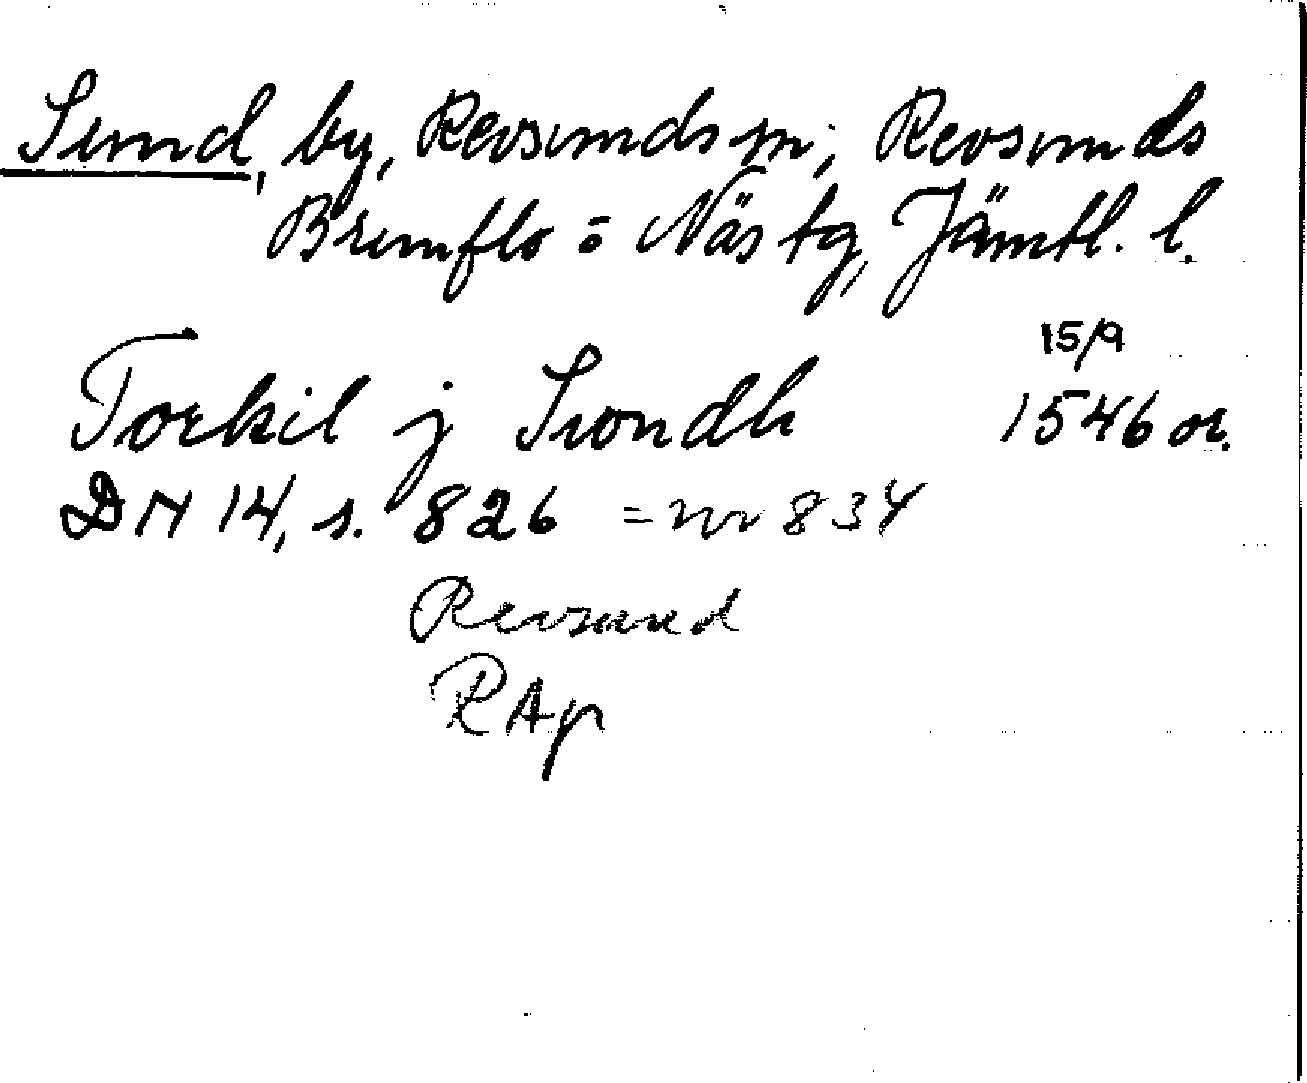 Sund, by, Revsunds sn; Revsunds
Brunflo o Näs tg, Jämtl. l.
15/9
Torkil j Swndh 1546 or.
DN 14, s. 826 = nr 834
Revsund
RAp